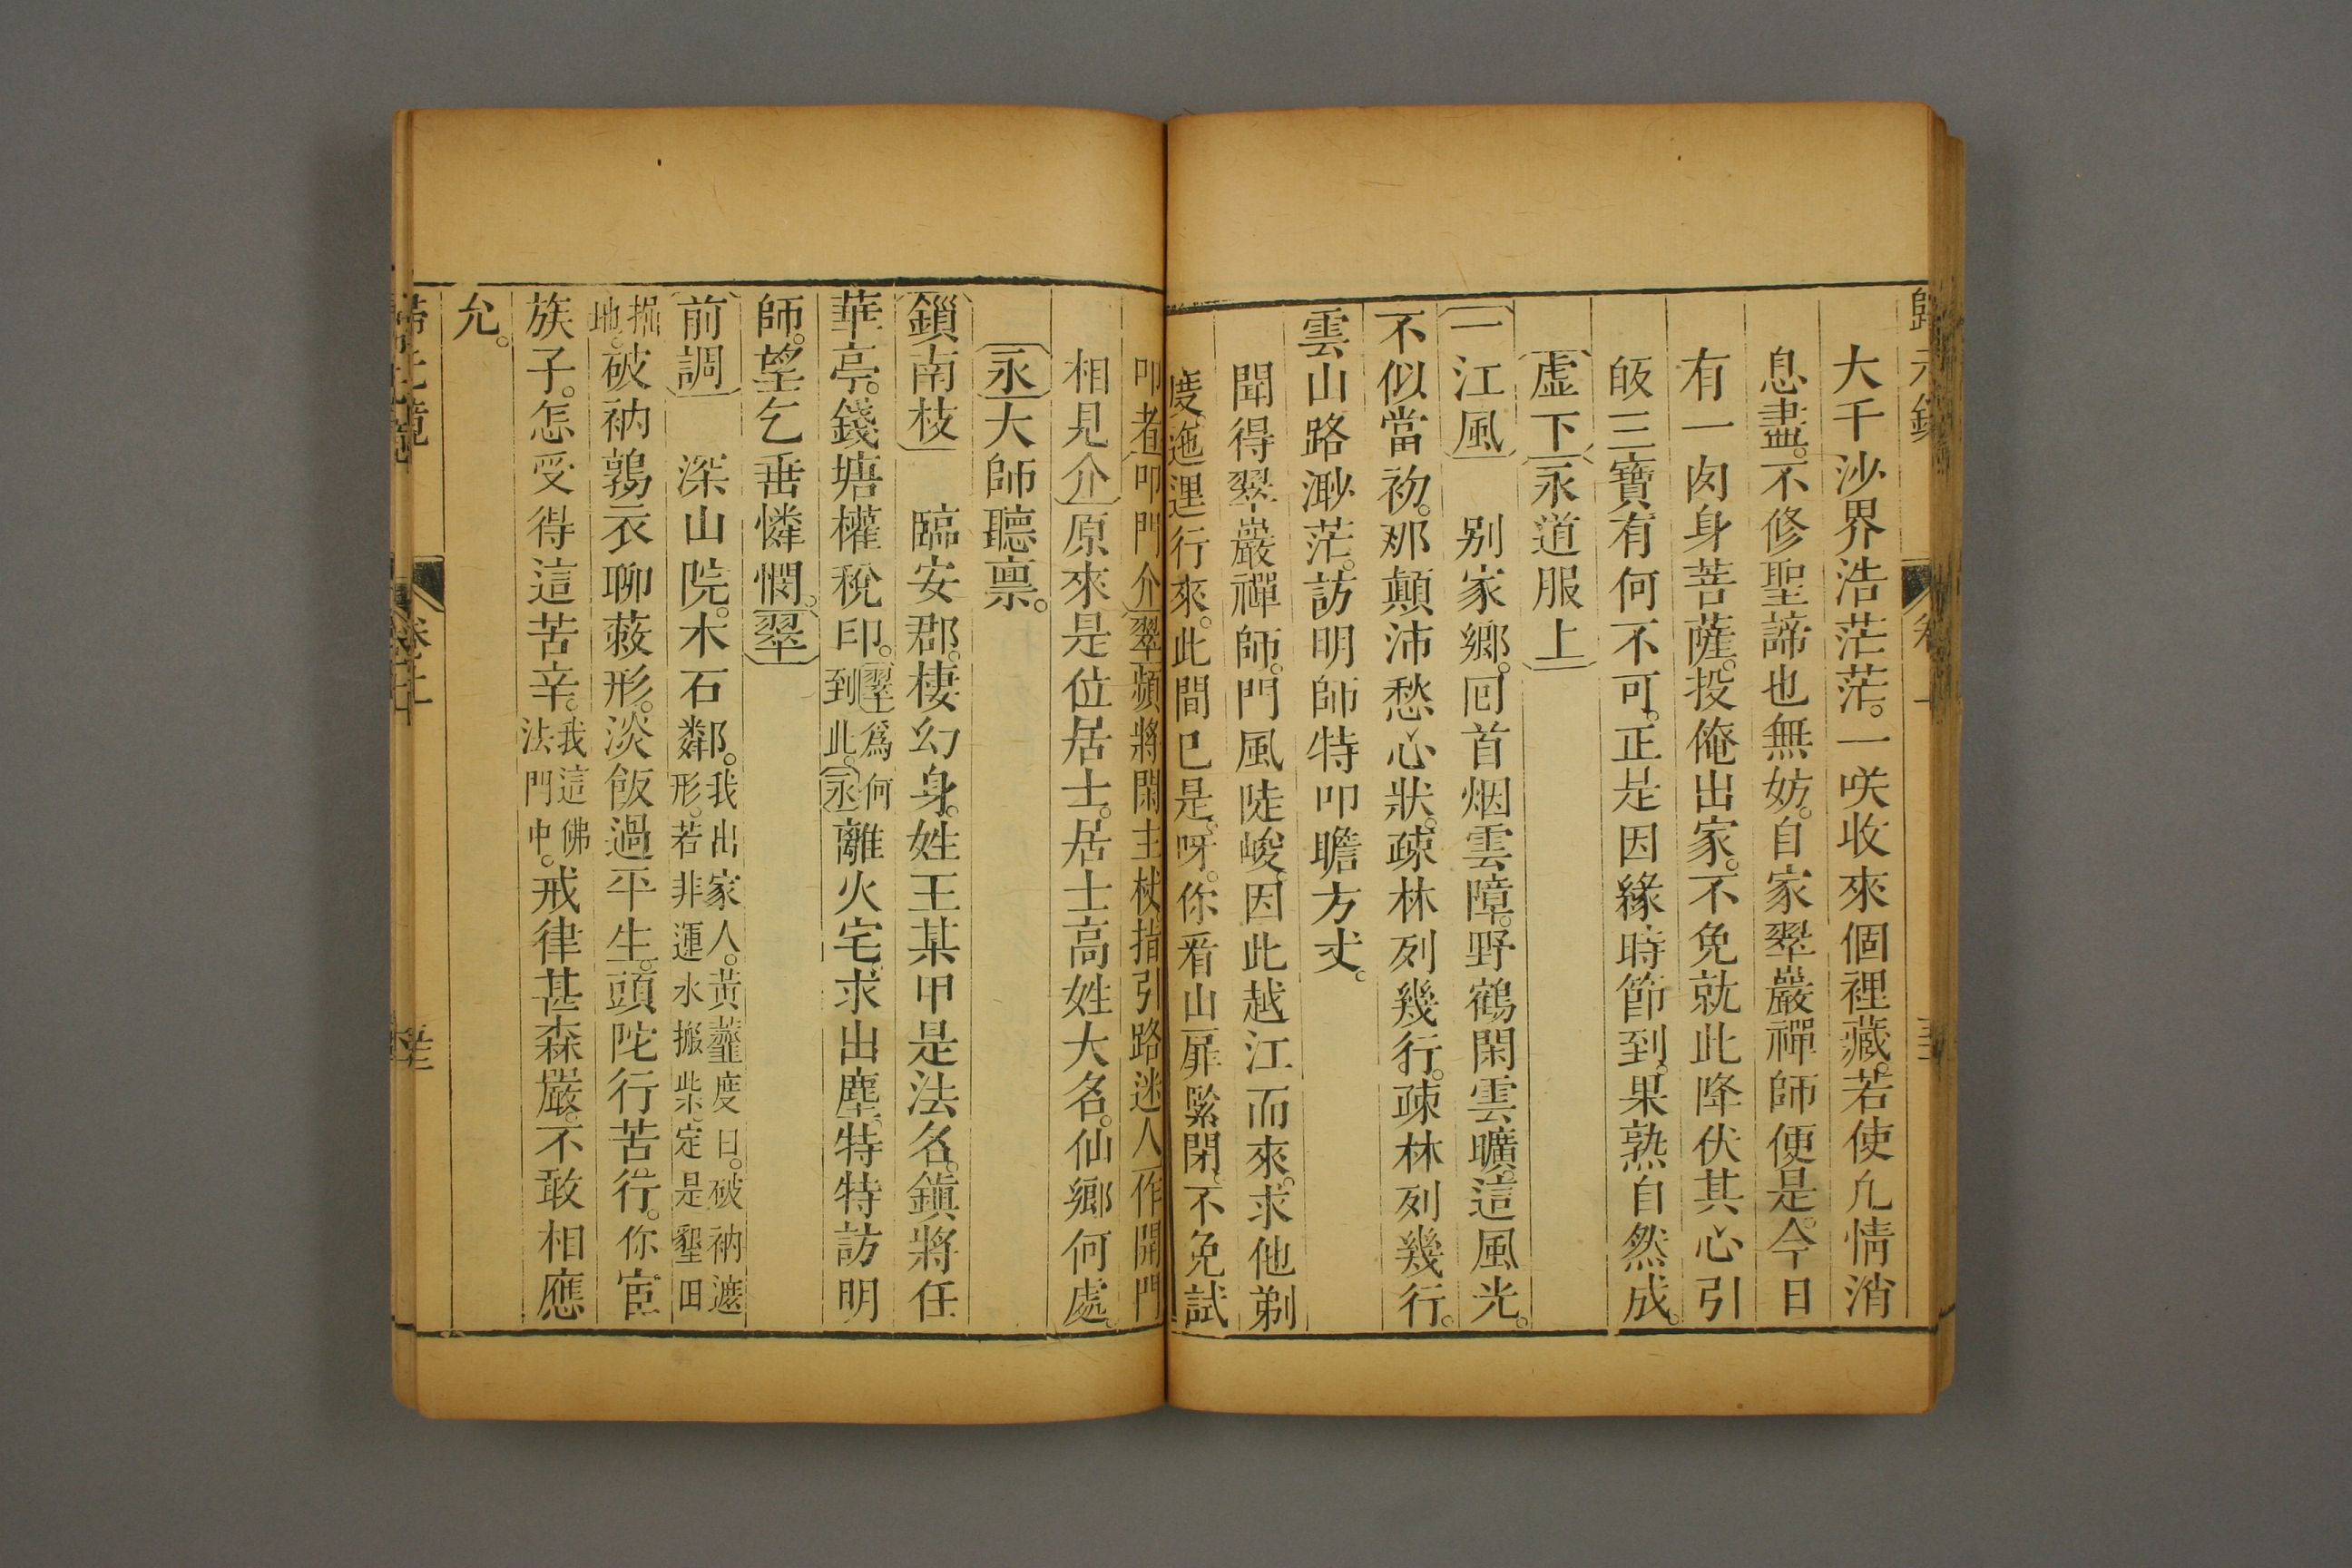 大千沙界浩茫茫。一咲收來個裡藏。若使凢情消
息盡。不修聖諦也無妨。自家翠巖禪師便是。今日
有一肉身菩薩。投俺出家。不免就此降伏其心引
皈三寶有何不可。正是因緣時節到。果熟自然成。
虛下永道服上
一江風　別家鄉。囘首烟雲障。野鶴閑雲曠。這風光。
不似當初。那顛沛愁心狀。疎林列幾行。疎林列幾行。
雲山路渺茫。訪明師特叩瞻方丈。
聞得翠巖禪師。門風陡峻。因此越江而來。求他剃
度。迤逞行來。此間已是。呀。你看山扉緊閉。不免試
叩者叩門介翠頻將閑主杖指引路迷人作開門
相見介原來是位居士。居士高姓大名。仙鄉何處。
永大師聽稟。
鎻南枝　臨安郡。棲幻身。姓王某甲是法名。鎭將任
華亭。錢塘權稅印。翠爲何到此。永離火宅。求出塵。特特訪明
師。望乞垂憐憫。翠
前調　深山院。木石鄰。我出家人。黃虀度日。破衲遮形。若非運水搬柴。定是墾田
掘地。破衲鶉衣聊蔽形。淡飯過平生。頭陀行苦行。你宦
族子。怎受得這苦辛。我這佛法門中。戒律甚森嚴。不敢相應
允。